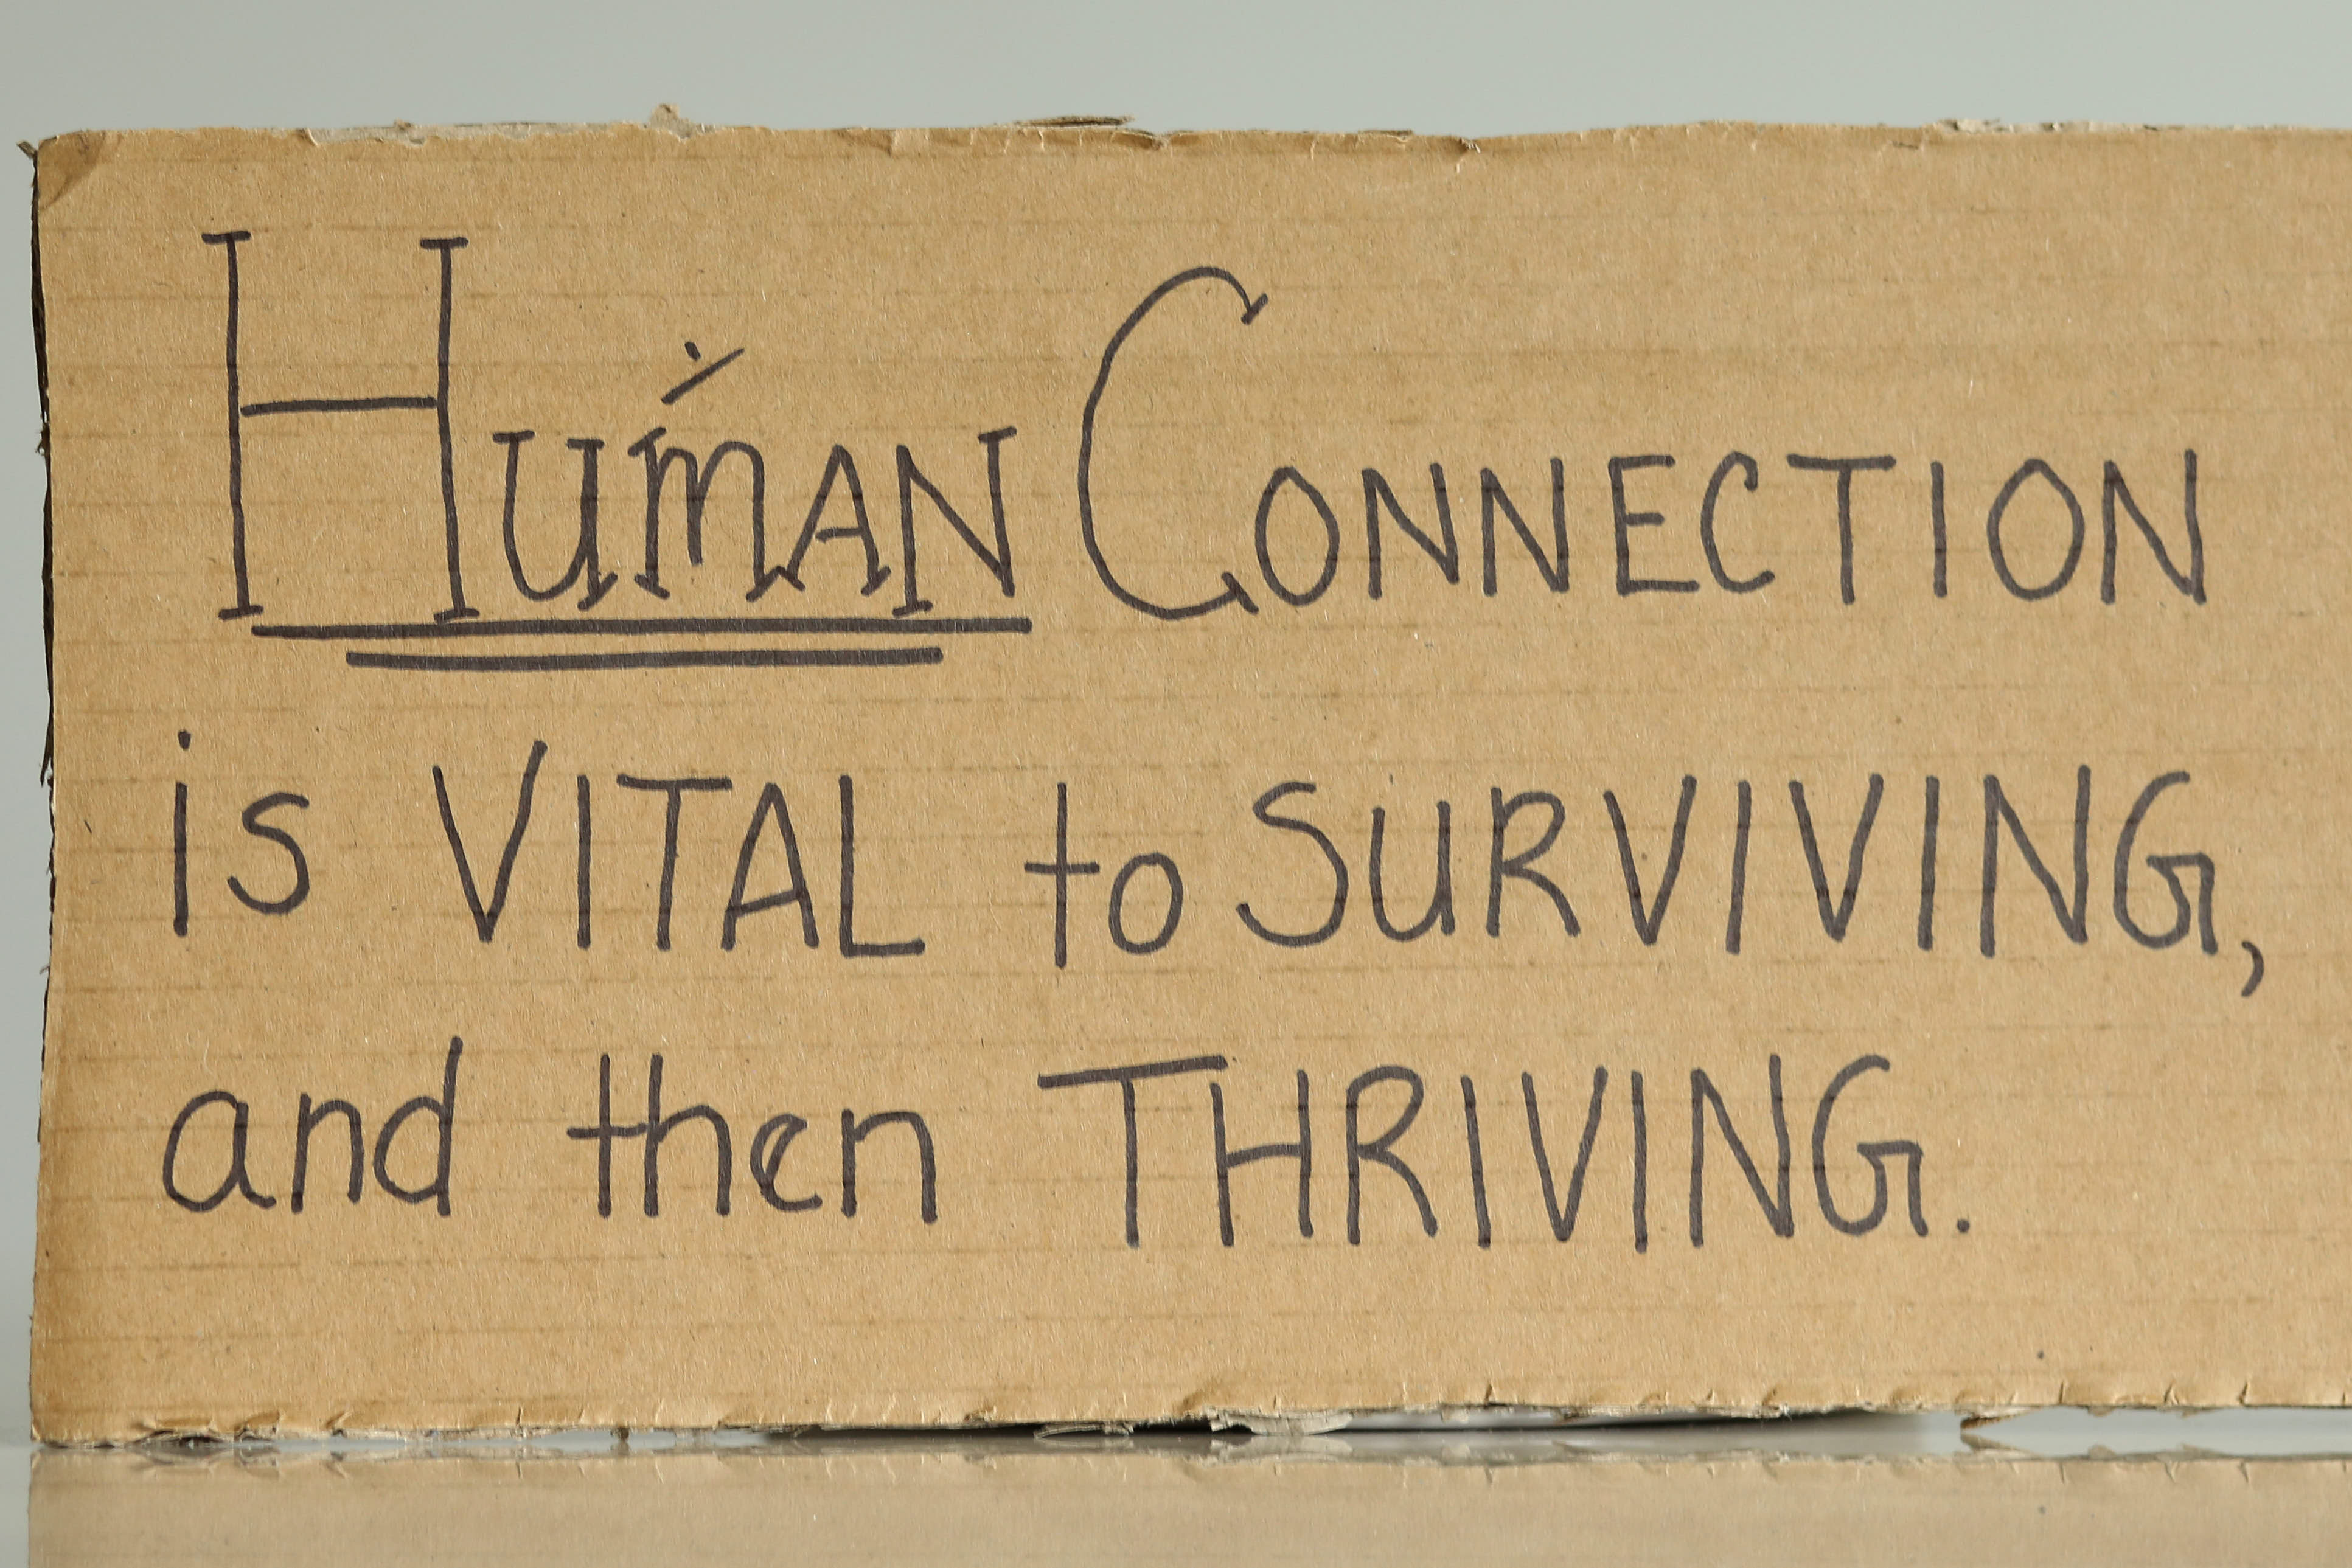 HUMAN CONNECTION
is VITAL to SURVIVING,
and then THRIVING.